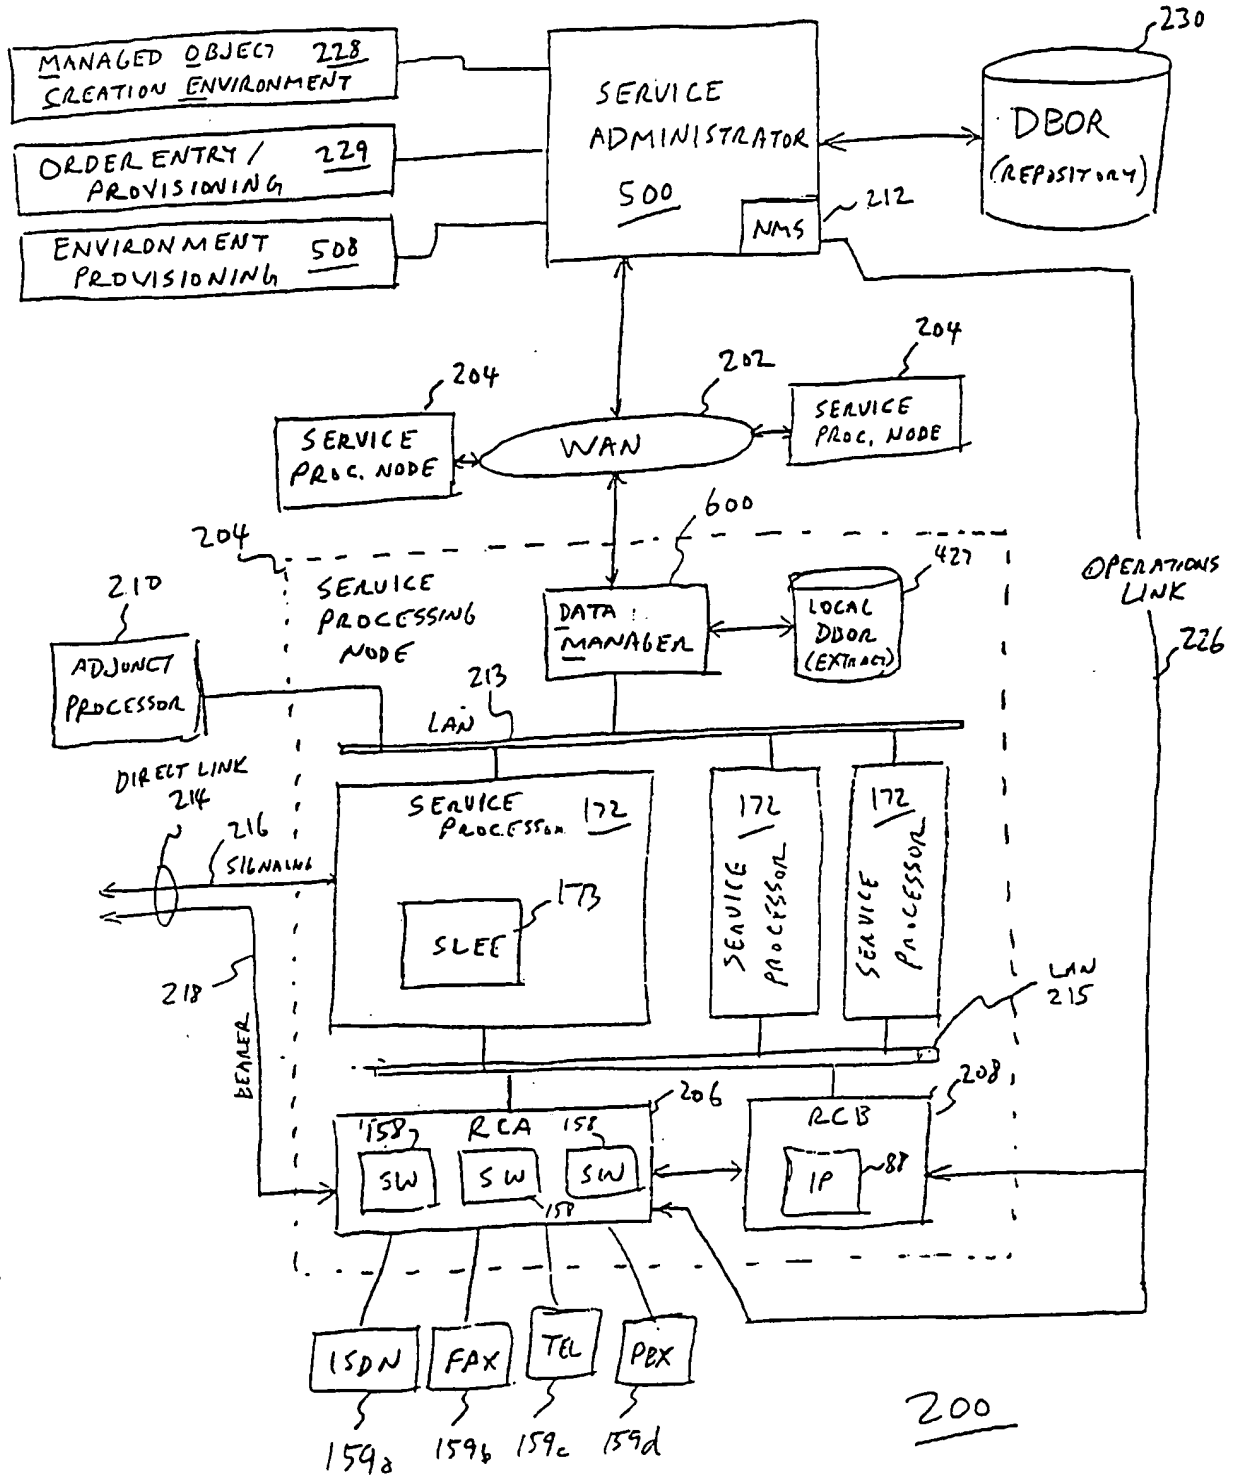 MANAGED OBJECT 228
CREATION ENVIRONMENT
ORDER ENTRY / 229
PROVISIONING
ENVIRONMENT 508
PROVISIONING
SERVICE
ADMINISTRATOR
500
NMS
212
230
DBOR
(REPOSITORY)
204
SERVICE
PROC. NODE
202
WAN
204
SERVICE
PROC. NODE
600
204
SERVICE
PROCESSING
NODE
DATA
MANAGER
427
LOCAL
DBOR
(EXTRACT)
OPERATIONS
LINK
226
210
ADJUNCT
PROCESSOR
213
LAN
DIRECT LINK
214
216
SIGNALING
SERVICE
PROCESSOR 172
173
SLEE
172
SERVICE
PROCESSOR
172
SERVICE
PROCESSOR
LAN
215
218
BEARER
206
RCA
158
SW
SW
158
158
SW
208
RCB
88
IP
ISDN
FAX
TEL
PBX
159a
159b
159c
159d
200